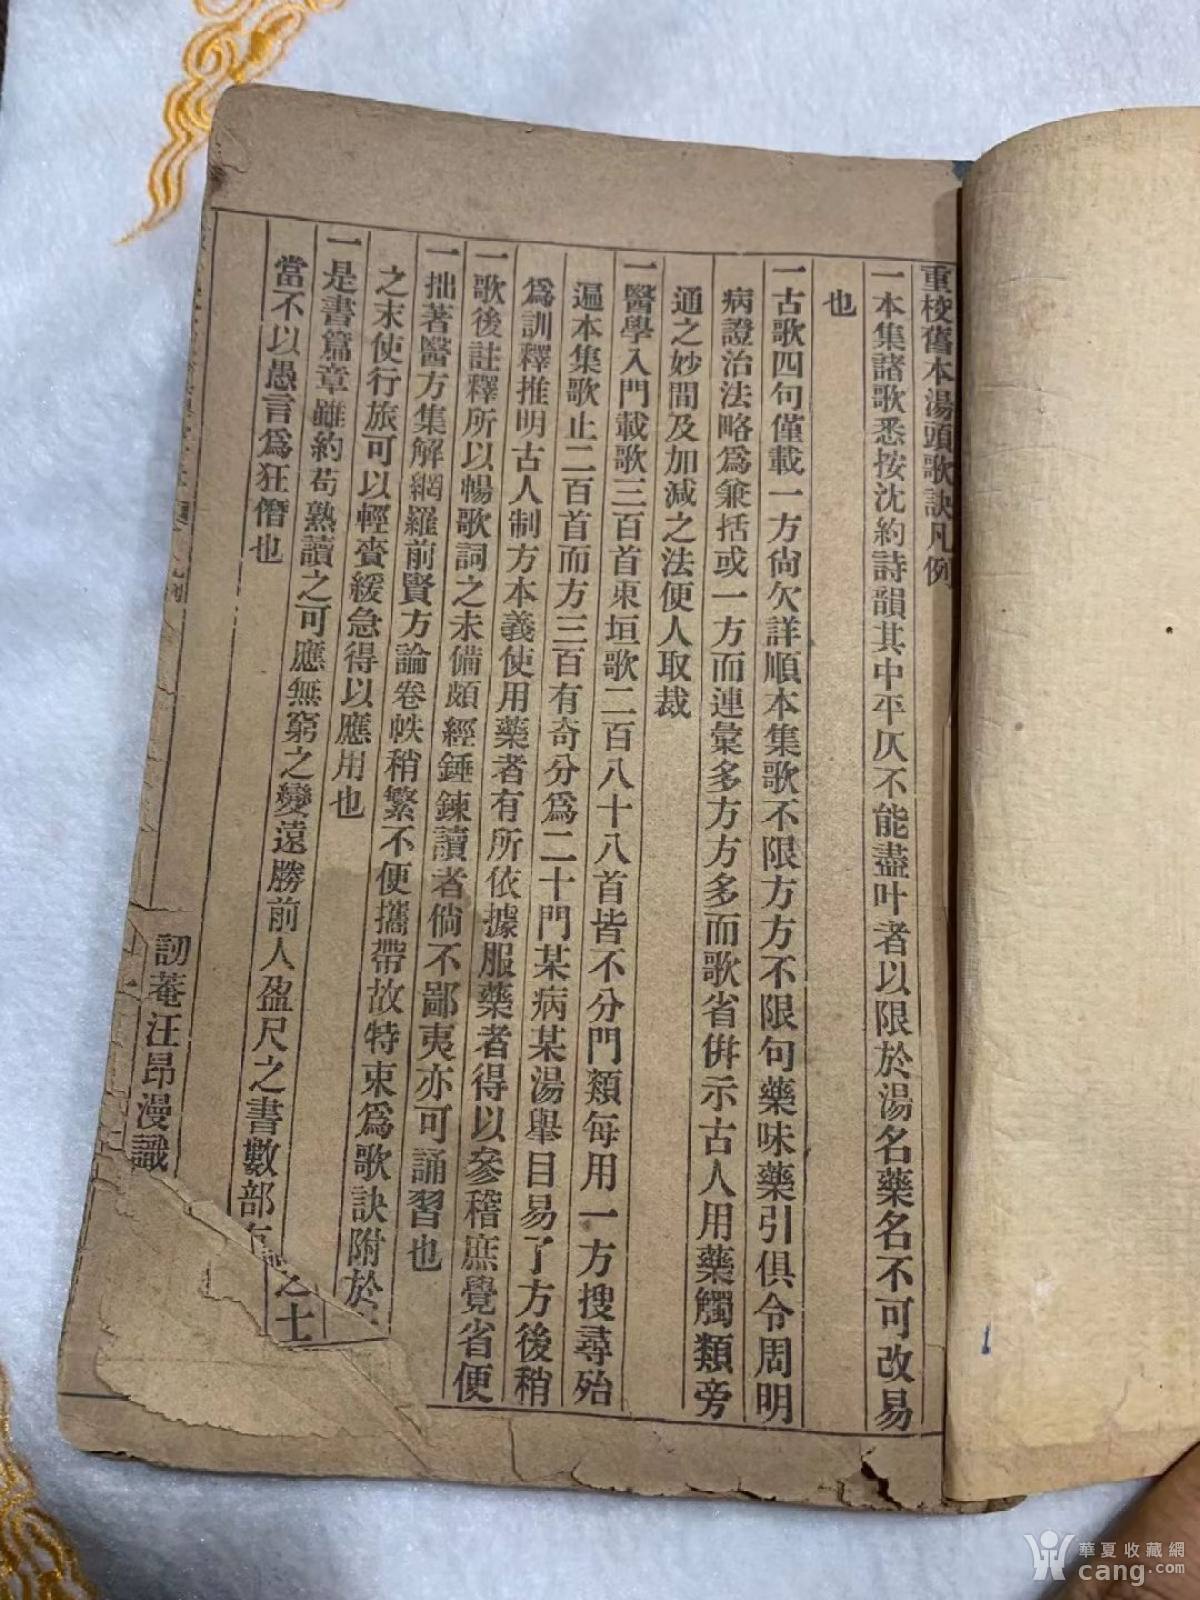 重校舊本湯頭歌訣凡例
一本集諸歌悉按沈約詩韻其中平仄不能盡叶者以限於湯名藥名不可改易
也
一古歌四句僅載一方尙欠詳順本集歌不限方方不限句藥味藥引俱令周明
病證治法略爲兼括或一方而連彙多方方多而歌省倂示古人用藥觸類旁
通之妙間及加減之法便人取裁
一醫學入門載歌三百首東垣歌二百八十八首皆不分門類每用一方搜尋殆
遍本集歌止二百首而方三百有奇分爲二十門某病某湯舉目易了方後稍
爲訓釋推明古人制方本義使用藥者有所依據服藥者得以參稽庶覺省便
一歌後註釋所以暢歌詞之未備頗經錘鍊讀者倘不鄙夷亦可誦習也
一拙著醫方集解網羅前賢方論卷帙稍繁不便攜帶故特束爲歌訣附於
之末使行旅可以輕賫緩急得以應用也
一是書篇章雖約苟熟讀之可應無窮之變遠勝前人盈尺之書數部之士
當不以愚言爲狂僭也
訒菴汪昂漫識
1
華夏收藏網
cang.com